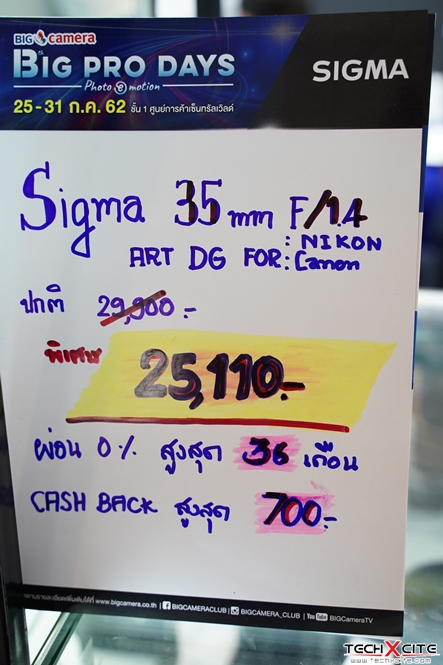 BIG camera
BIG PRO DAYS
Photo e motion
25 - 31 ก.ค. 62 ชั้น 1 ศูนย์การค้าเซ็นทรัลเวิลด์
SIGMA
Sigma 35mm F/1.4
ART DG FOR : NIKON
: Canon
ปกติ 29,900.-
พิเศษ 25,110.-
ผ่อน 0% สูงสุด 36 เดือน
CASH BACK สูงสุด 700.-
ดูรายละเอียดเพิ่มเติมได้ที่ www.bigcamera.co.th | BIGCAMERACLUB | BIGCAMERA_CLUB | YouTube BIGCameraTV
TECHXCITE
www.techxcite.com